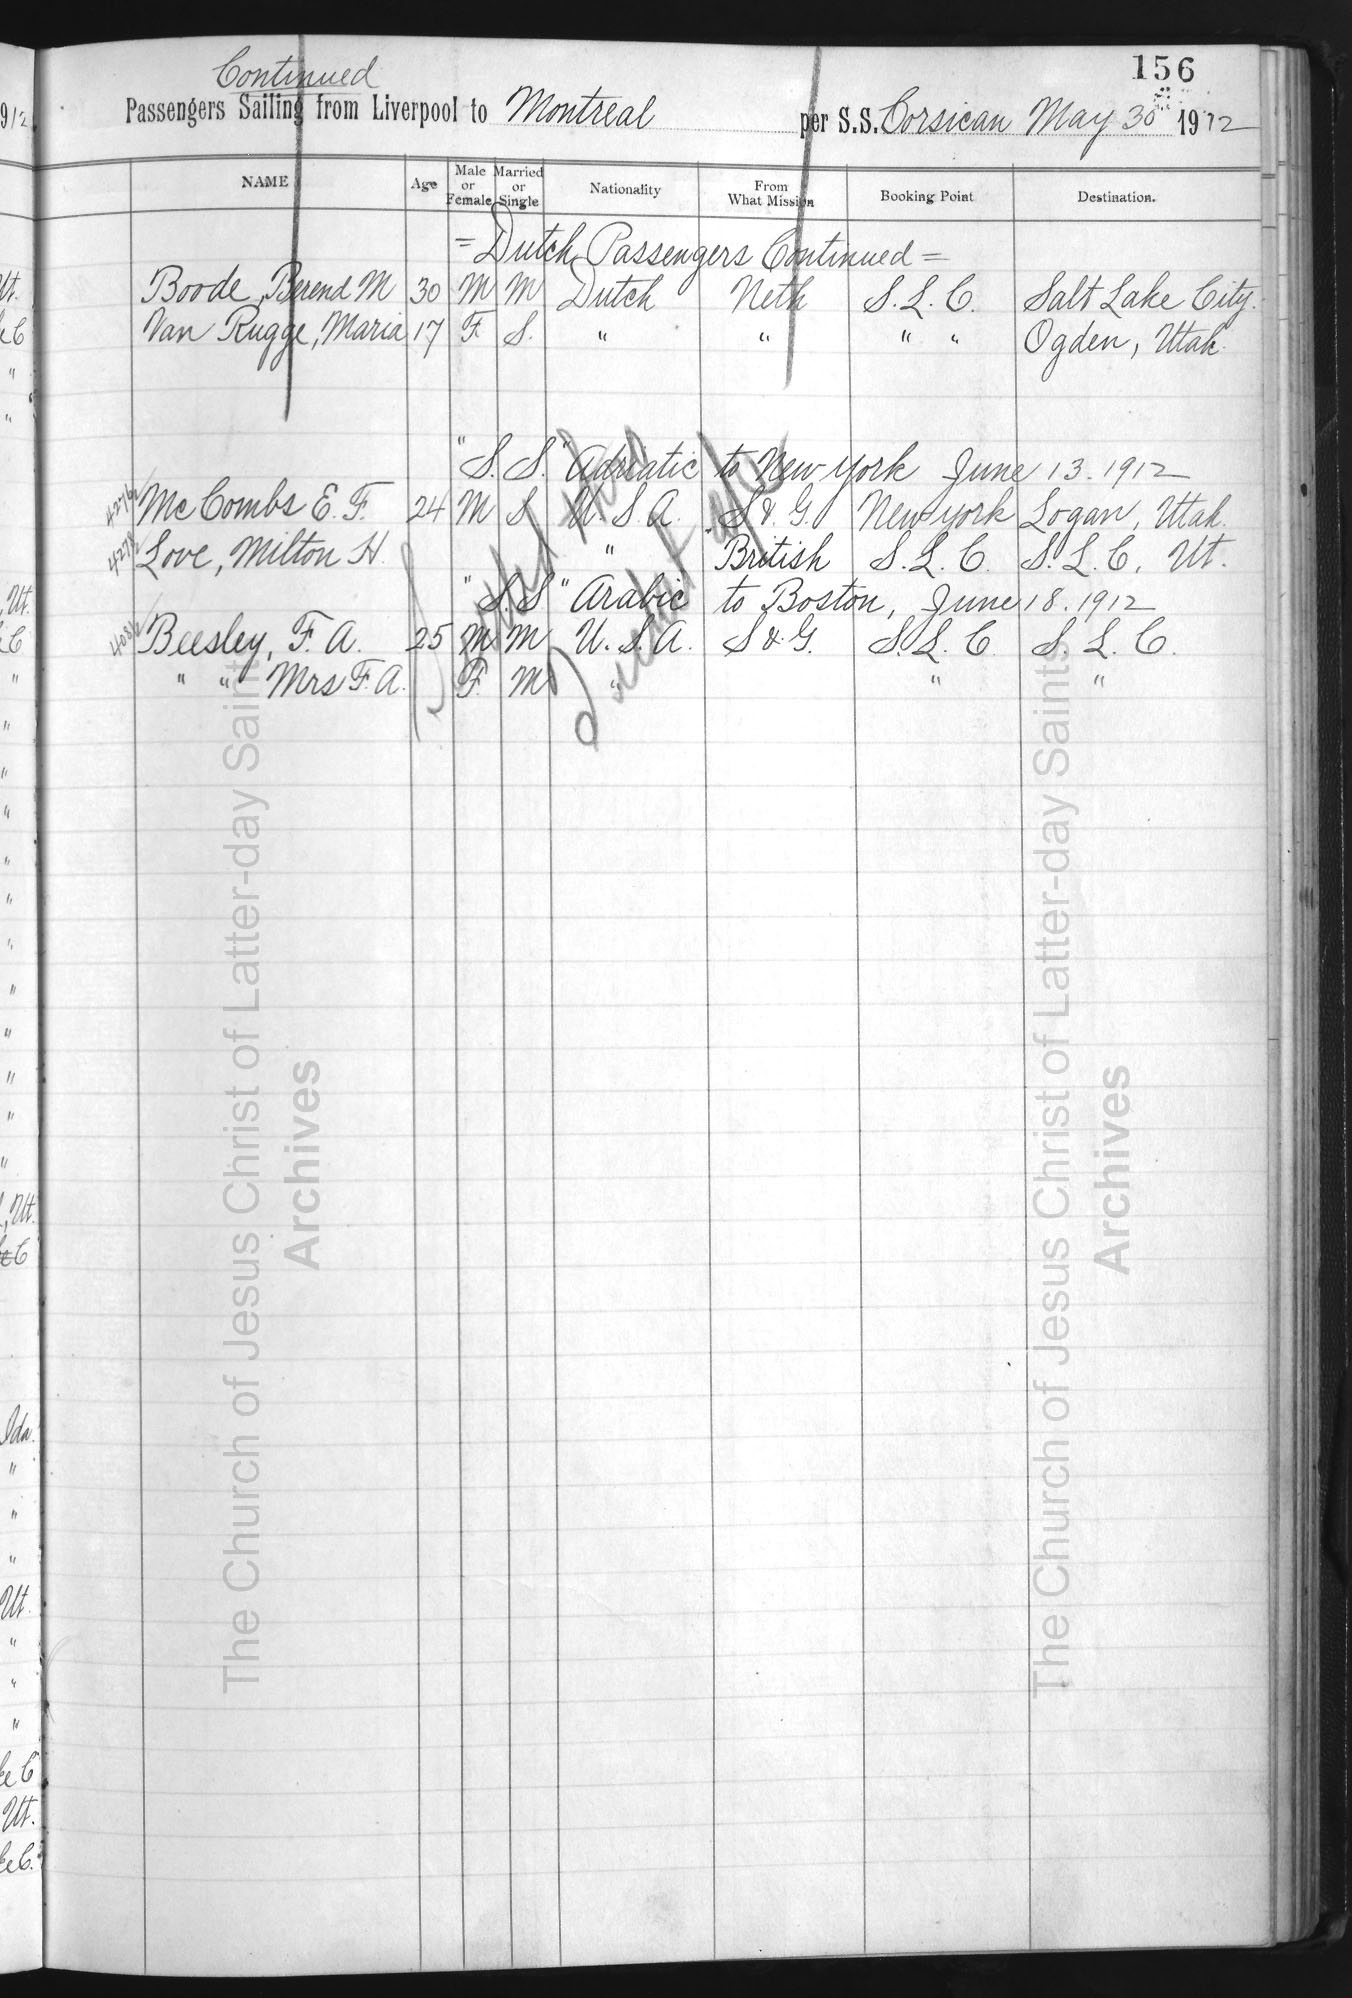 156
Continued
Passengers Sailing from Liverpool to Montreal per S.S. Corsican May 30 1912
NAME Age Male or Female Married or Single Nationality From What Mission Booking Point Destination.
= Dutch Passengers Continued =
Boode, Berend M 30 M M Dutch Neth S. L. C. Salt Lake City.
Van Rugge, Maria 17 F S. " " " " Ogden, Utah
"S. S. "Adriatic to New York June 13. 1912
Mc Combs E. F. 24 M S U. S. A. S & G. New York Logan, Utah.
Love, Milton H. " British S. L. C. S. L. C, Ut.
"S.S" Arabic to Boston, June 18. 1912
Beesley, F. A. 25 M M U. S. A. S & G. S. L. C S. L. C.
" " Mrs F. A. F. M " " "
The Church of Jesus Christ of Latter-day Saints
Archives
The Church of Jesus Christ of Latter-day Saints
Archives
912
Ut.
C
"
"
Ut.
C
"
"
"
"
"
"
"
"
"
"
"
"
, Ut.
C
Ida.
"
"
"
Ut.
"
"
"
ke C
Ut.
ke C.